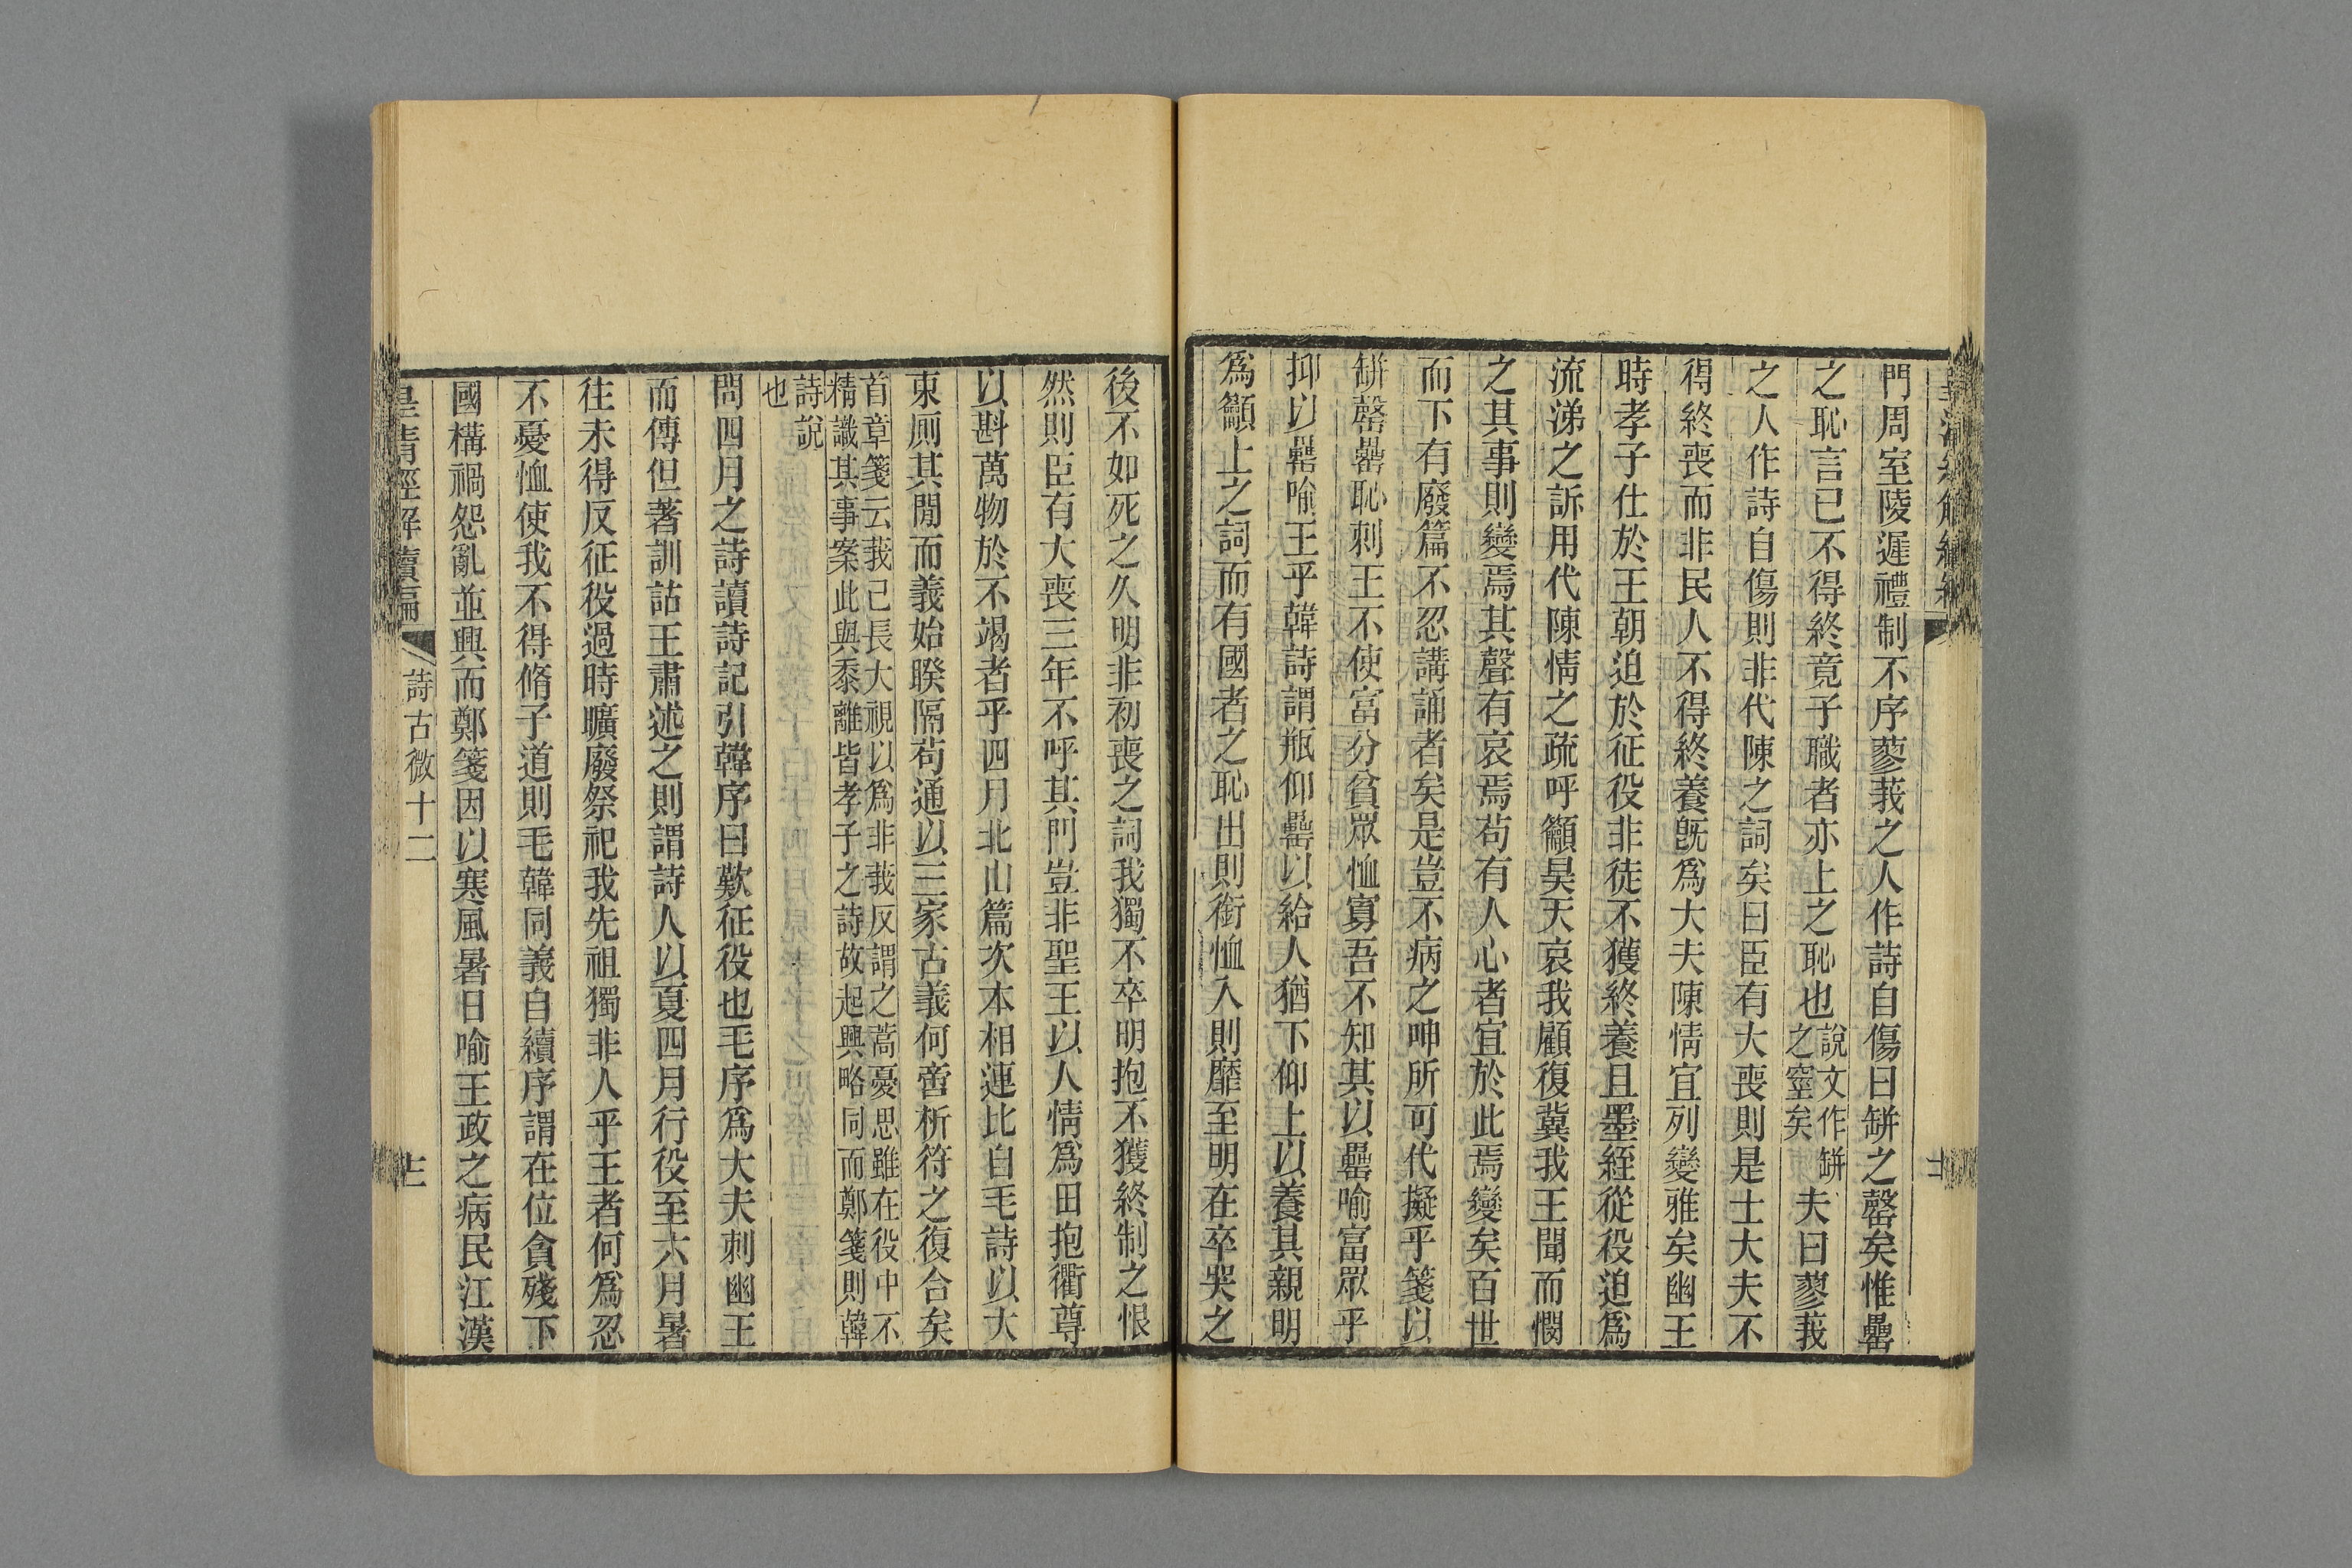 門周室陵遲禮制不序蓼莪之人作詩自傷曰缾之罄矣惟罍
之恥言已不得終竟子職者亦上之恥也說文作缾之窒矣夫曰蓼莪
之人作詩自傷則非代陳之詞矣曰臣有大喪則是士大夫不
得終喪而非民人不得終養旣爲大夫陳情宜列變雅矣幽王
時孝子仕於王朝迫於征役非徒不獲終養且墨絰從役迫爲
流涕之訴用代陳情之疏呼籲昊天哀我顧復冀我王聞而憫
之其事則變焉其聲有哀焉苟有人心者宜於此焉變矣百世
而下有廢篇不忍講誦者矣是豈不病之呻所可代擬乎箋以
缾罄罍恥刺王不使富分貧眾恤寡吾不知其以罍喻富眾乎
抑以罍喻王乎韓詩謂瓶仰罍以給人猶下仰上以養其親明
爲籲上之詞而有國者之恥出則銜恤入則靡至明在卒哭之
後不如死之久明非初喪之詞我獨不卒明抱不獲終制之恨
然則臣有大喪三年不呼其門豈非聖王以人情爲田抱衢尊
以斟萬物於不竭者乎四月北山篇次本相連比自毛詩以大
東厠其閒而義始睽隔苟通以三家古義何啻析符之復合矣
首章箋云莪已長大視以爲非莪反謂之蒿憂思雖在役中不
精識其事案此與黍離皆孝子之詩故起興略同而鄭箋則韓
詩說
也
問四月之詩讀詩記引韓序曰歎征役也毛序爲大夫刺幽王
而傳但著訓詁王肅述之則謂詩人以夏四月行役至六月暑
往未得反征役過時曠廢祭祀我先祖獨非人乎王者何爲忍
不憂恤使我不得脩子道則毛韓同義自續序謂在位貪殘下
國構禍怨亂並興而鄭箋因以寒風暑日喻王政之病民江漢
皇清經解續編 詩古微十二